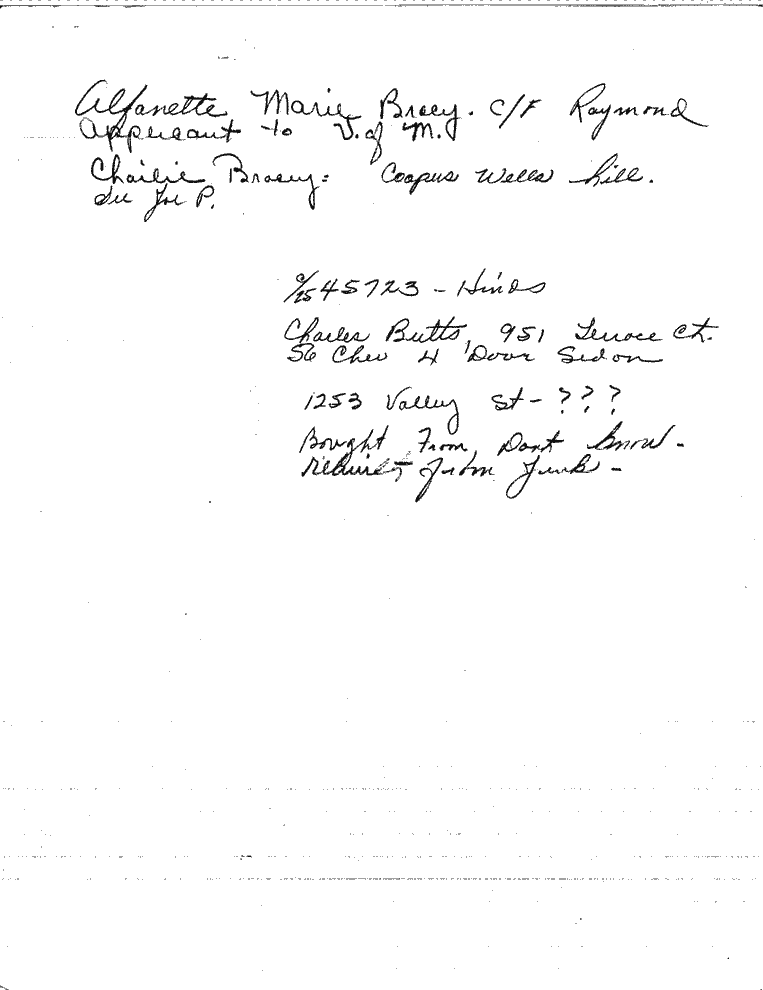 Alfanette Marie Bracy. C/F Raymond
applicant to U. of M.
Charlie Bracy: Coopers Wells hill.
See Joe P.
C/25 45723 - Hinds
Charles Butts, 951 Terrace Ct.
56 Chev 4 Door Sedan
1253 Valley St - ? ? ?
Bought From, Dont know -
rebuilt from Junk -